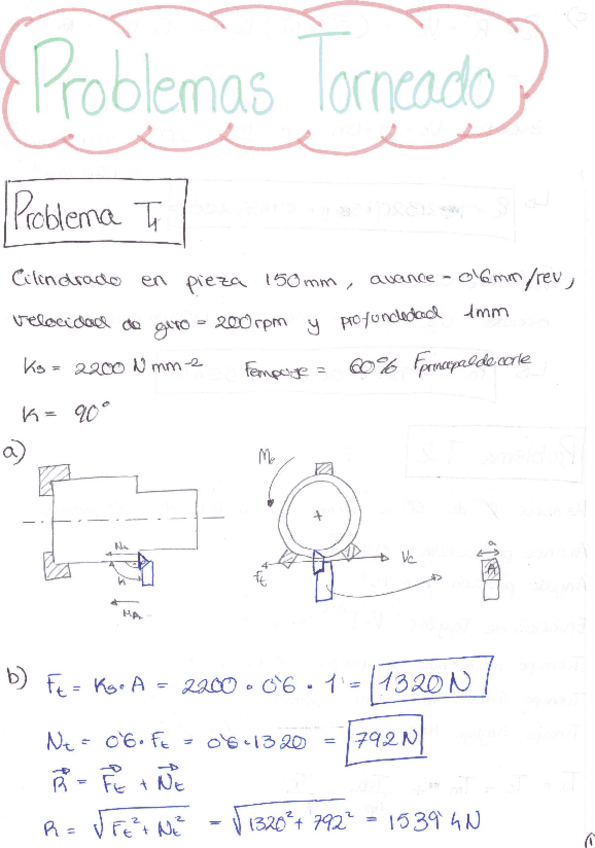 Problemas Torneado
Problema T1
Cilindrado en pieza 150mm, avance = 0'6mm/rev,
velocidad de giro = 200 rpm y profundidad 1mm
Ks = 2200 N mm-2 Fempuje = 60% Fprincipal de corte
K = 90°
a)
Mc
Nt
K
Ft
Vc
a
A
b) Ft = Ks·A = 2200 · 0'6 · 1 = 1320 N
Nt = 0'6 · Ft = 0'6 · 1320 = 792 N
R = Ft + Nt
R = √Ft² + Nt² = √1320² + 792² = 1539'4 N